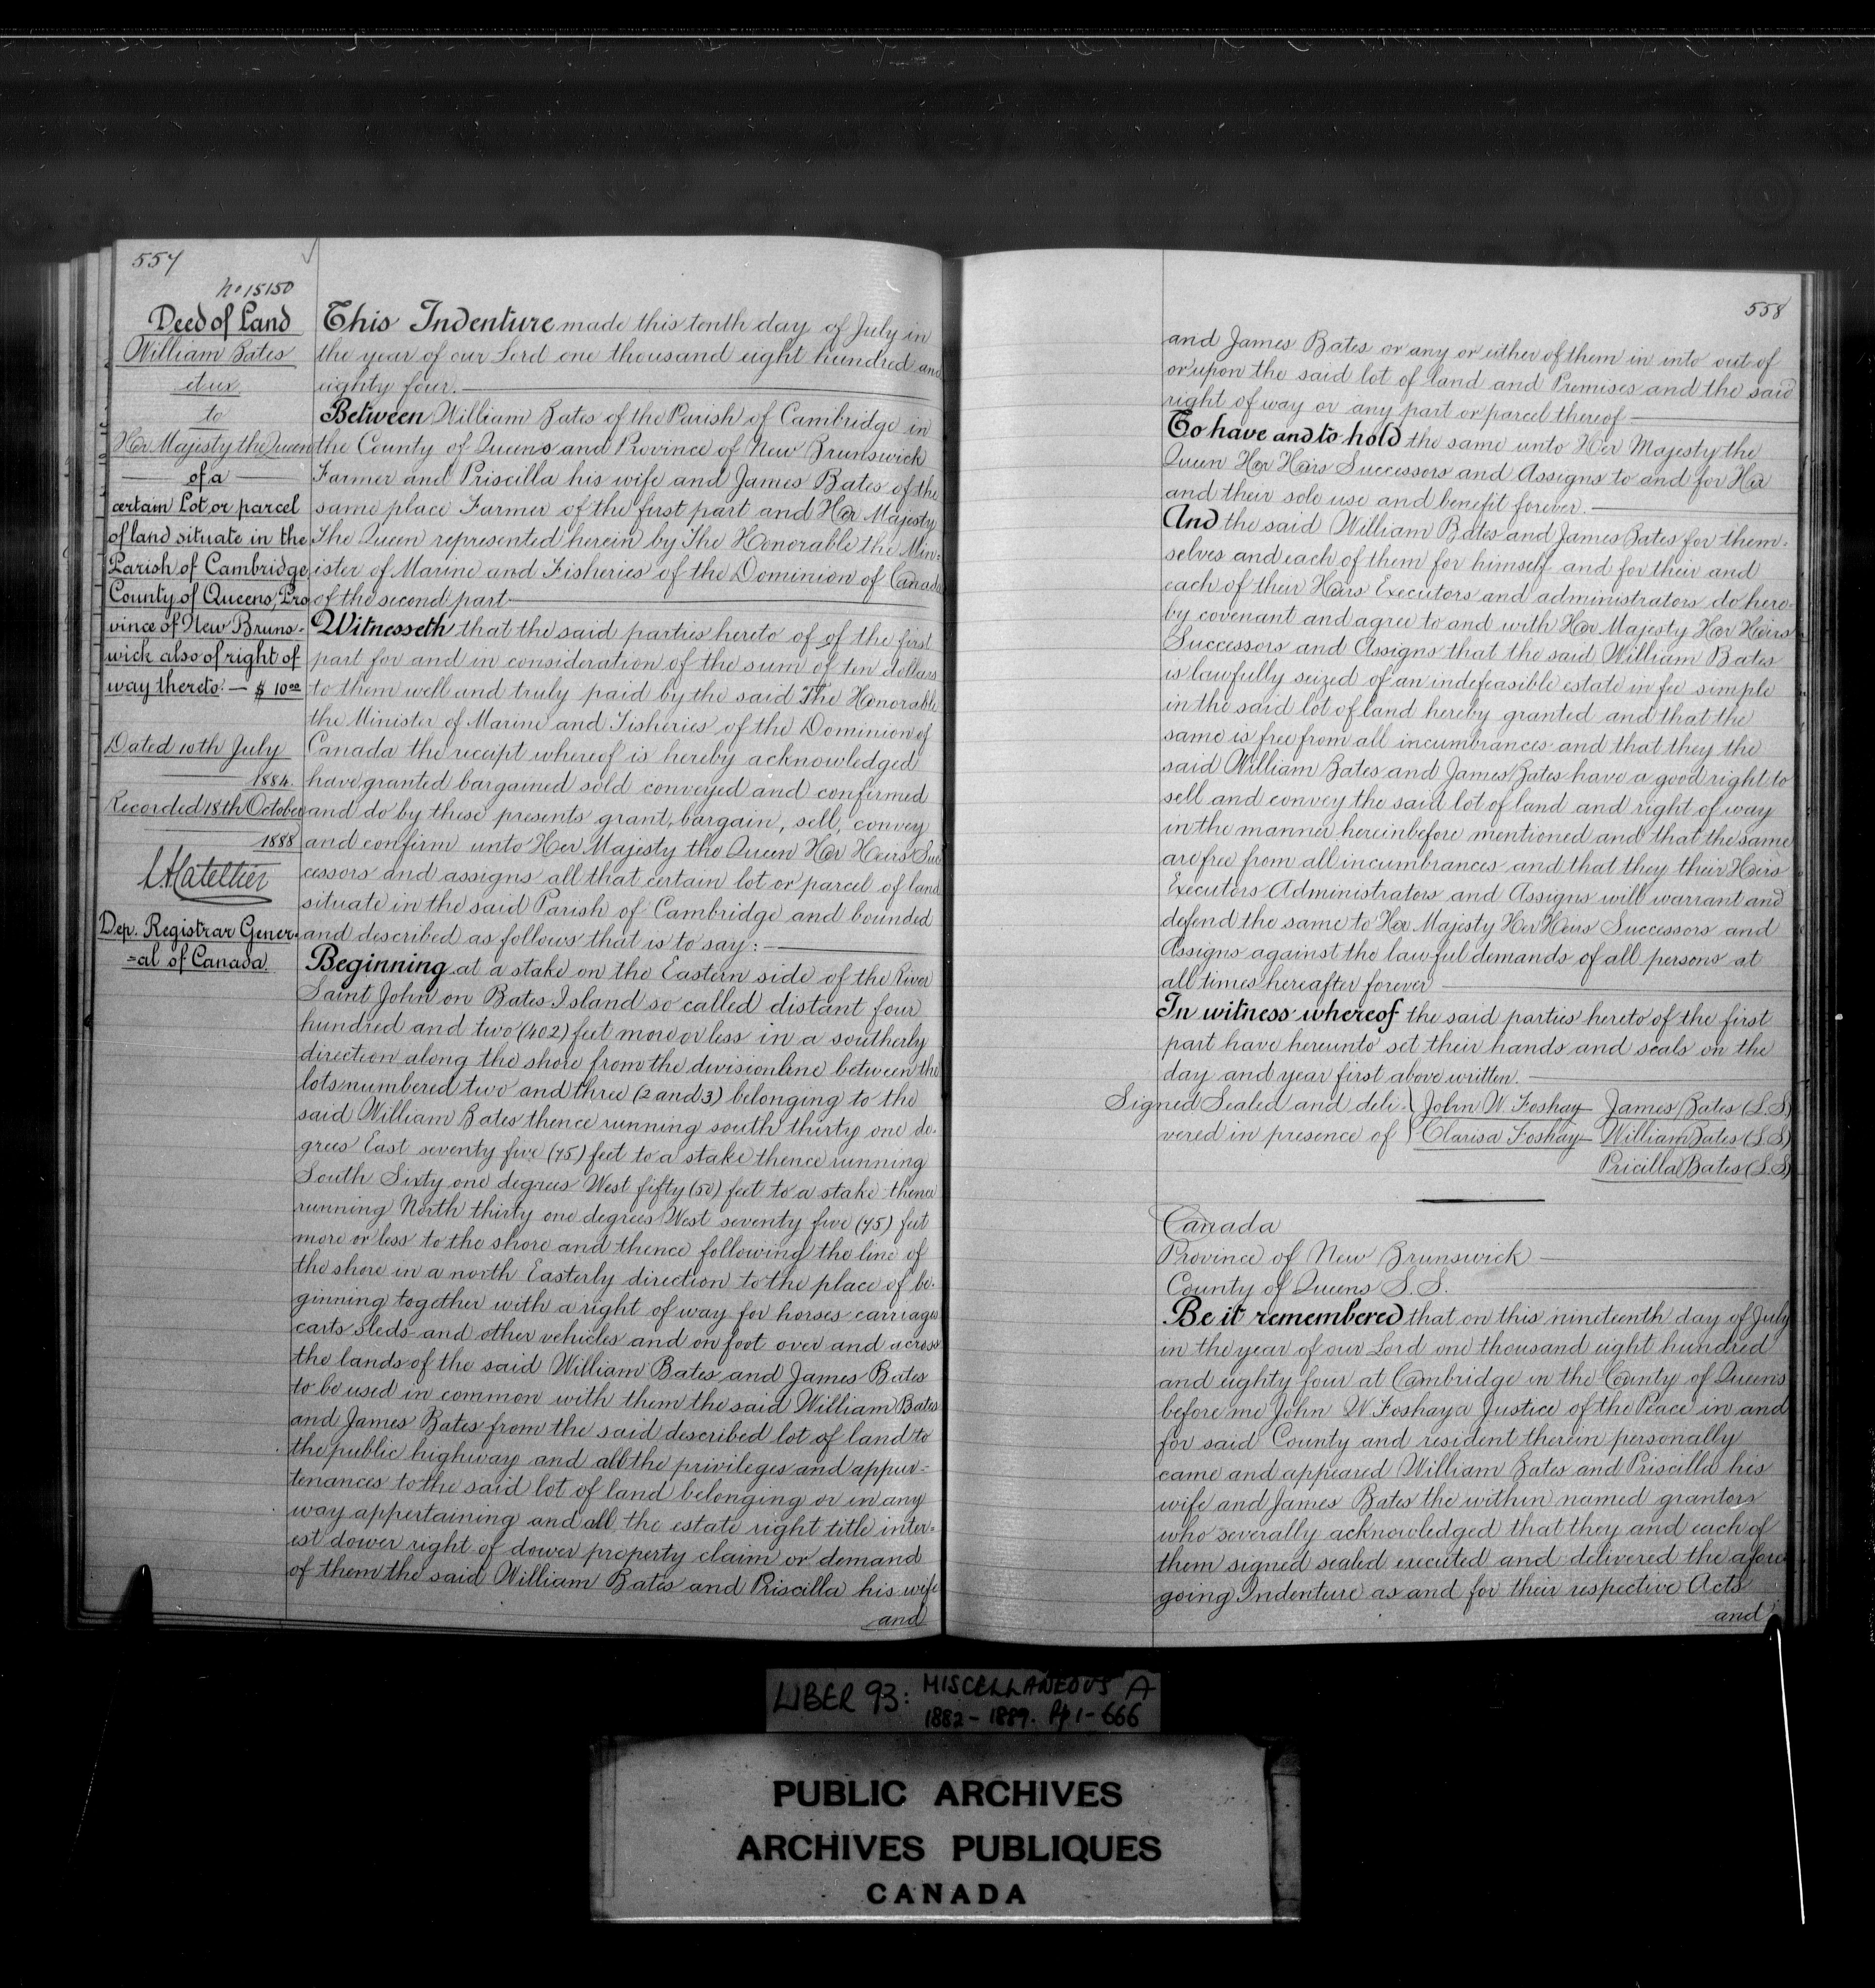 557
No 15150
Deed of Land
William Bates
et ux
to
Her Majesty the Queen
of a
certain Lot or parcel
of land situate in the
Parish of Cambridge,
County of Queens, Pro
vince of New Bruns-
wick also of right of
way thereto. — $ 10 00
Dated 10th July
1884.
Recorded 18th October
1888
Dep. Registrar Gener-
=al of Canada.
This Indenture made this tenth day of July in
the year of our Lord one thousand eight hundred and
eighty four.
Between William Bates of the Parish of Cambridge in
the County of Queens and Province of New Brunswick
Farmer and Priscilla his wife and James Bates of the
same place Farmer of the first part and Her Majesty
The Queen represented herein by The Honorable the Min-
ister of Marine and Fisheries of the Dominion of Canada
of the second part
Witnesseth that the said parties hereto of of the first
part for and in consideration of the sum of ten dollars
to them well and truly paid by the said The Honorable
the Minister of Marine and Fisheries of the Dominion of
Canada the receipt whereof is hereby acknowledged
have granted bargained sold conveyed and confirmed
and do by these presents grant, bargain, sell, convey
and confirm unto Her Majesty the Queen Her Heirs Suc
cessors and assigns all that certain lot or parcel of land
situate in the said Parish of Cambridge and bounded
and described as follows that is to say: —
Beginning at a stake on the Eastern side of the River
Saint John on Bates Island so called distant four
hundred and two (402) feet more or less in a southerly
direction along the shore from the division line between the
lots numbered two and three (2 and 3) belonging to the
said William Bates thence running south thirty one de-
grees East seventy five (75) feet to a stake thence running
South Sixty one degrees West fifty (50) feet to a stake thence
running North thirty one degrees West seventy five (75) feet
more or less to the shore and thence following the line of
the shore in a north Easterly direction to the place of be-
ginning together with a right of way for horses carriages
carts sleds and other vehicles and on foot over and across
the lands of the said William Bates and James Bates
to be used in common with them the said William Bates
and James Bates from the said described lot of land to
the public highway and all the privileges and appur-
tenances to the said lot of land belonging or in any
way appertaining and all the estate right title inter=
est dower right of dower property claim or demand
of them the said William Bates and Priscilla his wife
and
558
and James Bates or any or either of them in into out of
or upon the said lot of land and Premises and the said
right of way or any part or parcel thereof
To have and to hold the same unto Her Majesty the
Queen Her Heirs Successors and Assigns to and for Her
and their sole use and benefit forever.
And the said William Bates and James Bates for them-
selves and each of them for himself and for their and
each of their Heirs Executors and administrators do here-
by covenant and agree to and with Her Majesty Her Heirs
Successors and Assigns that the said William Bates
is lawfully seized of an indefeasible estate in fee simple
in the said lot of land hereby granted and that the
same is free from all incumbrances and that they the
said William Bates and James Bates have a good right to
sell and convey the said lot of land and right of way
in the manner hereinbefore mentioned and that the same
are free from all incumbrances and that they their Heirs
Executors Administrators and Assigns will warrant and
defend the same to Her Majesty Her Heirs Successors and
Assigns against the lawful demands of all persons at
all times hereafter forever
In witness whereof the said parties hereto of the first
part have hereunto set their hands and seals on the
day and year first above written.
Signed Sealed and deli- John W. Foshay James Bates (L.S)
vered in presence of Clarisa Foshay William Bates (L.S)
Pricilla Bates (L.S)
Canada
Province of New Brunswick
County of Queens S.S.
Be it remembered that on this nineteenth day of July
in the year of our Lord one thousand eight hundred
and eighty four at Cambridge in the County of Queens
before me John W. Foshay a Justice of the Peace in and
for said County and resident therein personally
came and appeared William Bates and Priscilla his
wife and James Bates the within named grantors
who severally acknowledged that they and each of
them signed sealed executed and delivered the afore
going Indenture as and for their respective Acts
and
LIBER 93: MISCELLANEOUS A
1882-1889. Pp 1-666
PUBLIC ARCHIVES
ARCHIVES PUBLIQUES
CANADA